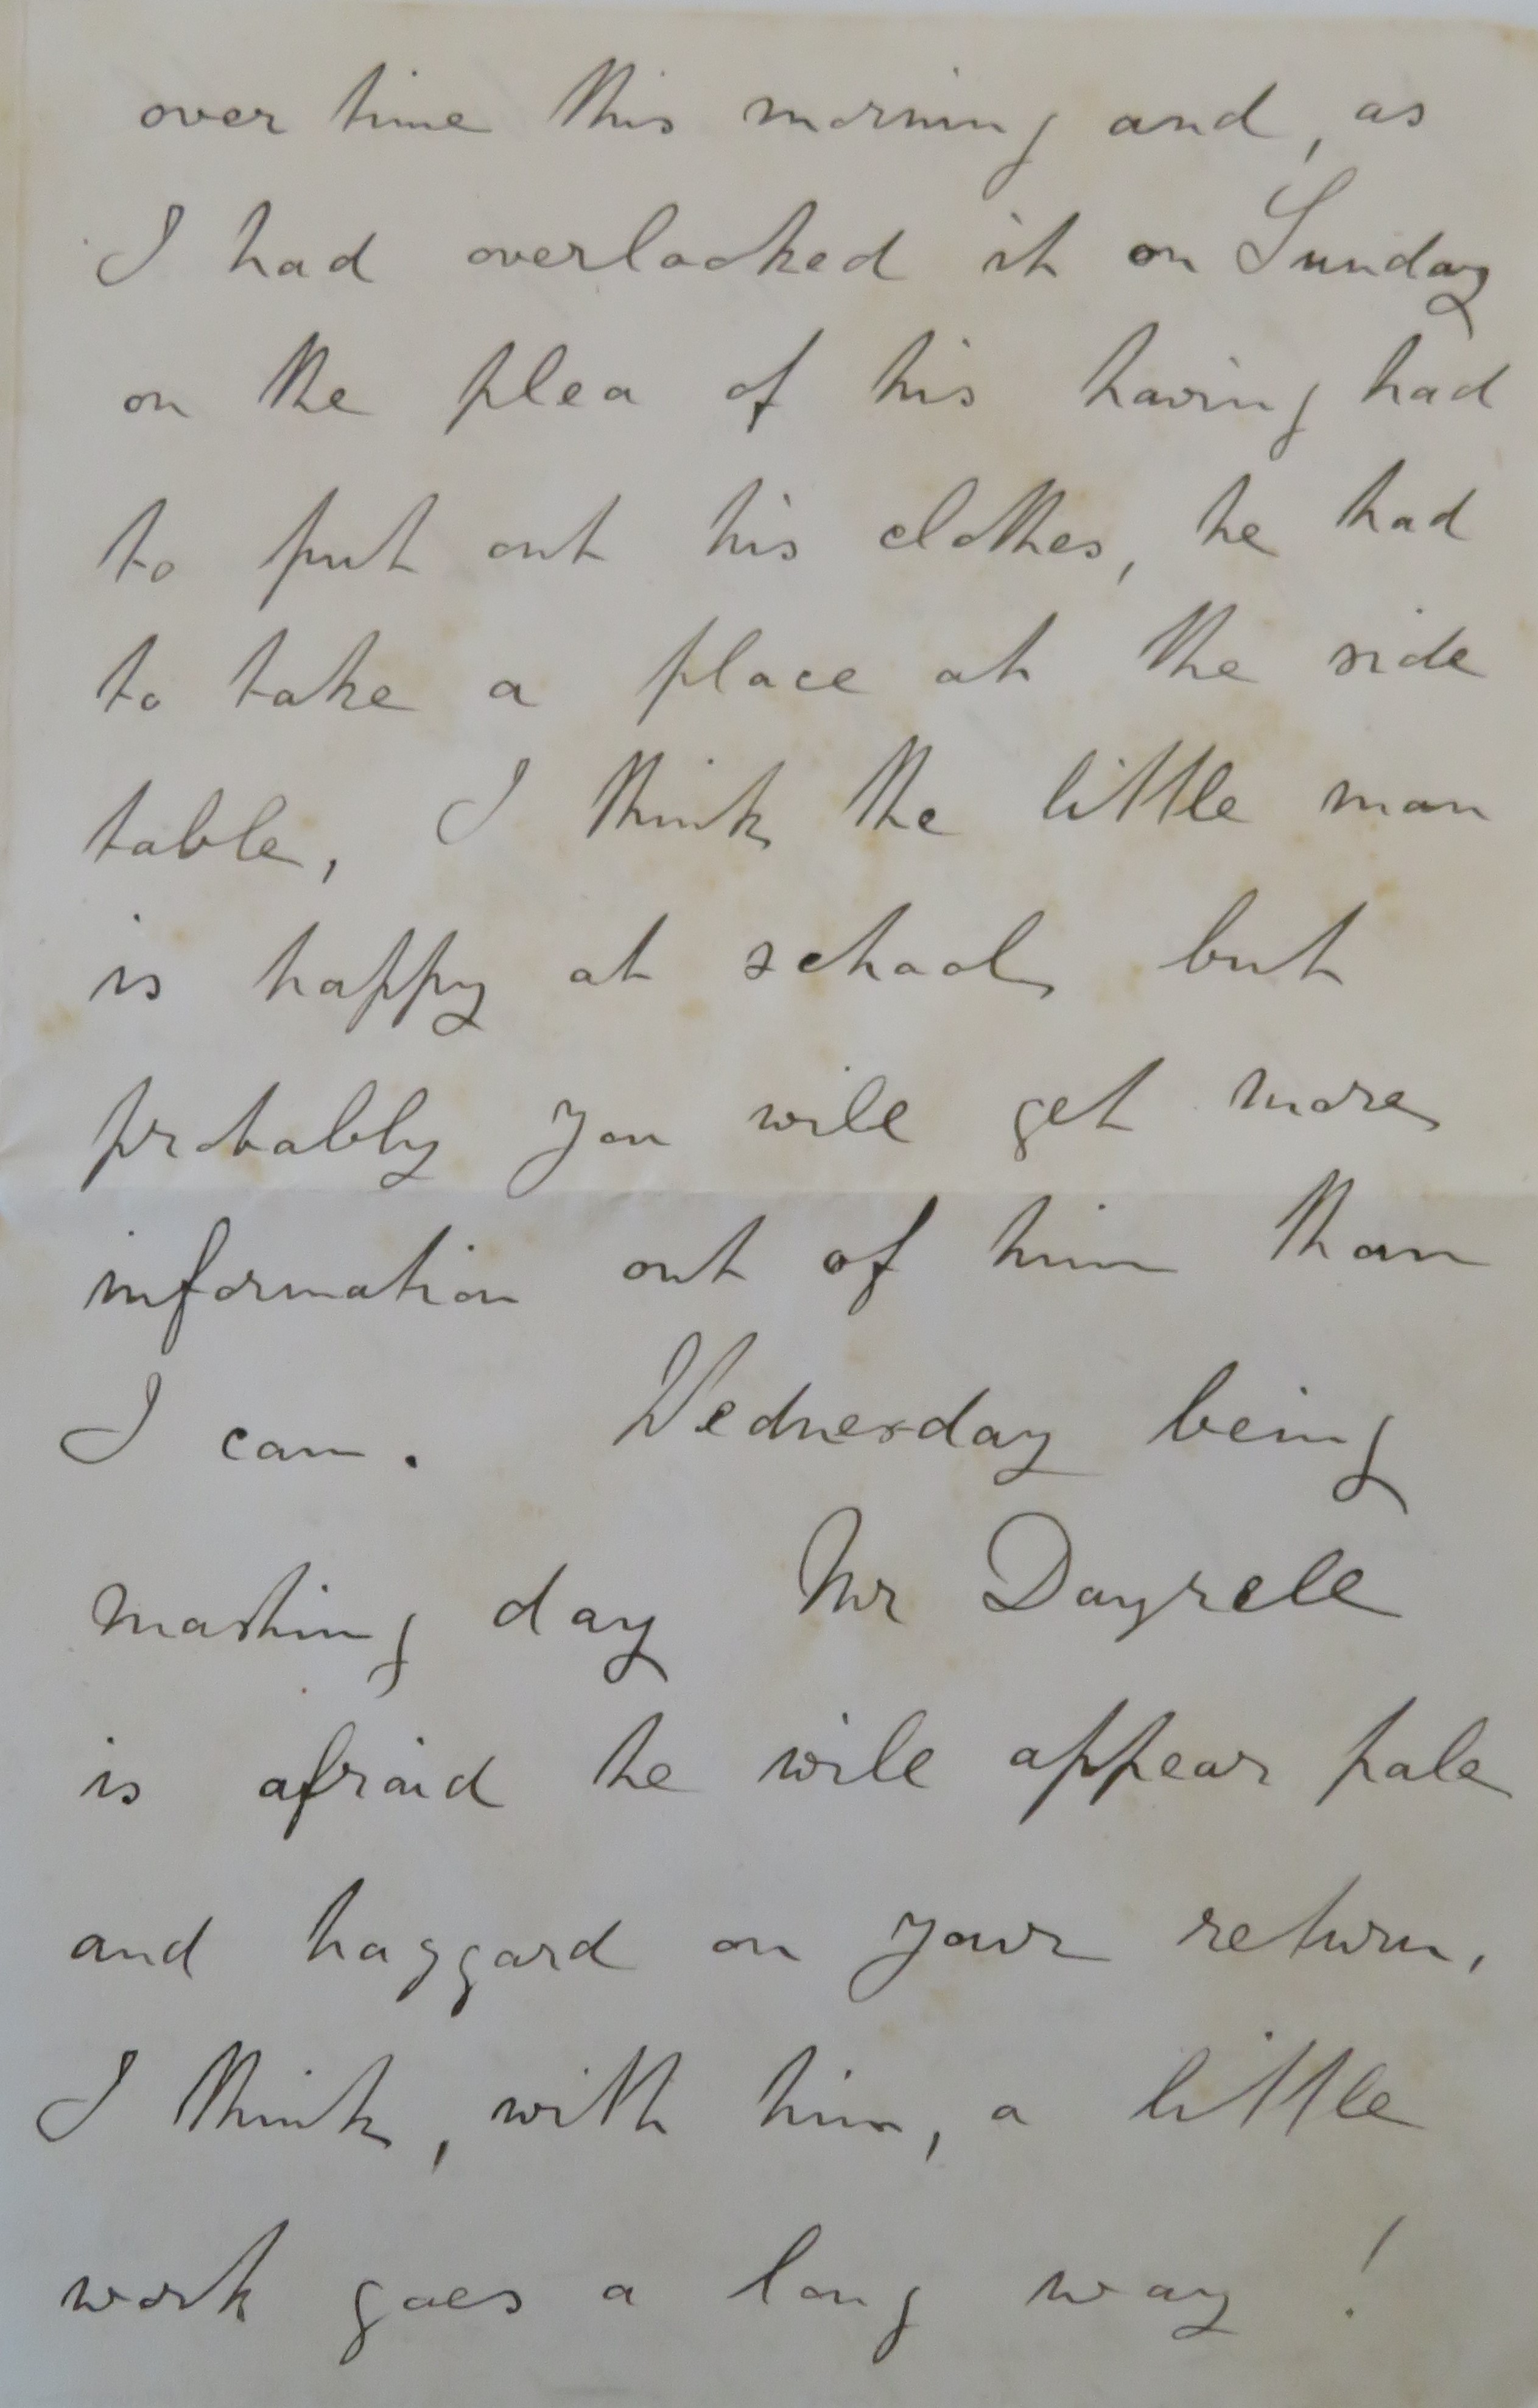 over time this morning and, as
I had overlooked it on Sunday
on the plea of his having had
to put out his clothes, he had
to take a place at the side
table, I think the little man
is happy at school but
probably you will get more
information out of him than
I can. Wednesday being
mashing day Mr Dayrell
is afraid he will appear pale
and haggard on your return,
I think, with him, a little
work goes a long way!